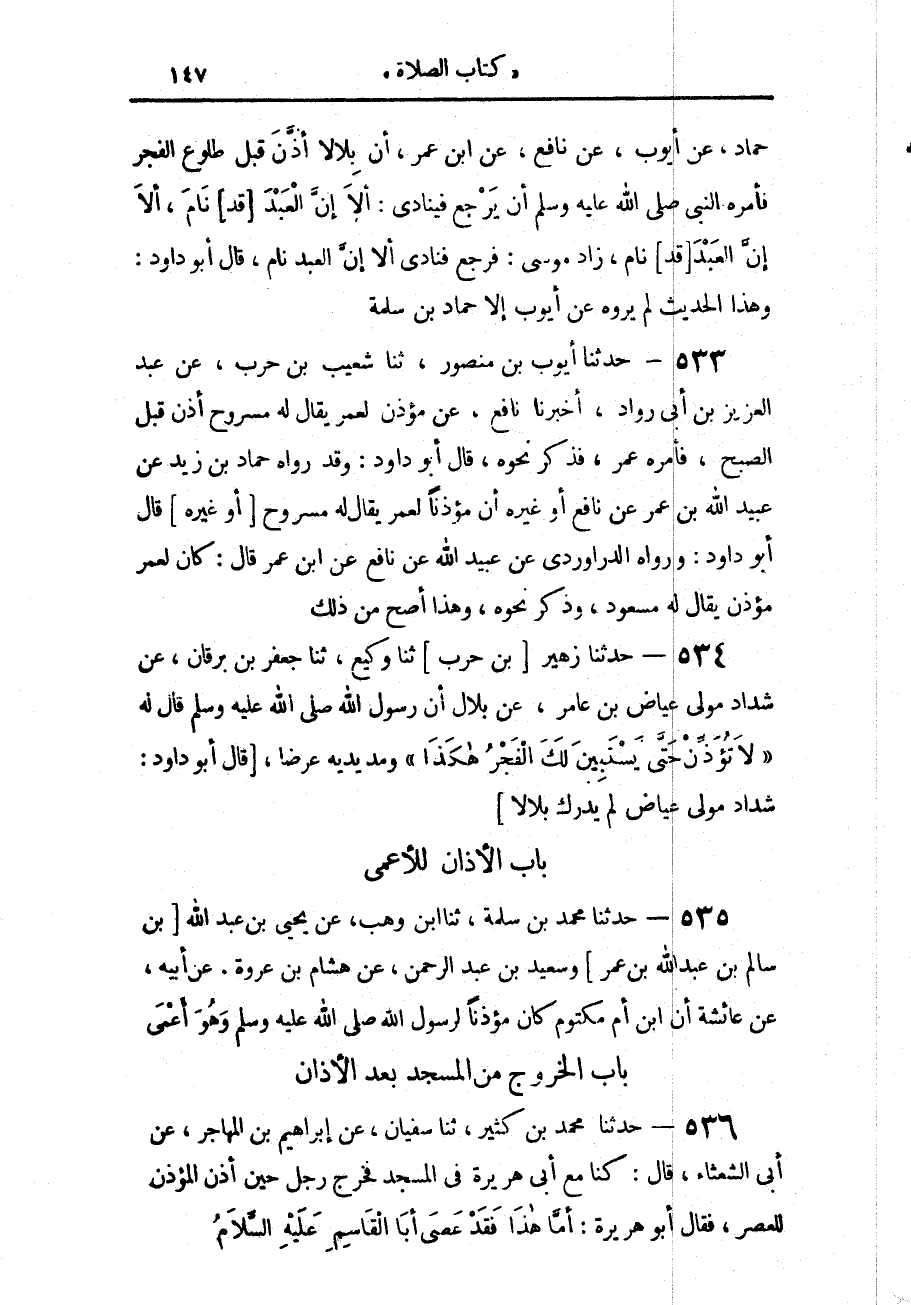 « كتاب الصلاة » ١٤٧
حماد ، عن أيوب ، عن نافع ، عن ابن عمر ، أن بِلالا أذَّنَ قبل طلوع الفجر
فأمره النبي صلى الله عليه وسلم أن يَرْجع فينادى : ألاَ إنَّ الْعَبْدَ [قد] نَامَ ، ألاَ
إنَّ العَبْدَ[قد] نام ، زاد موسى : فرجع فنادى ألا إنَّ العبد نام ، قال أبو داود :
وهذا الحديث لم يروه عن أيوب إلا حماد بن سلمة
٥٣٣ – حدثنا أيوب بن منصور ، ثنا شعيب بن حرب ، عن عبد
العزيز بن أبى رواد ، أخبرنا نافع ، عن مؤذن لعمر يقال له مسروح أذن قبل
الصبح ، فأمره عمر ، فذكر نحوه ، قال أبو داود : وقد رواه حماد بن زيد عن
عبيد الله بن عمر عن نافع أو غيره أن مؤذناً لعمر يقال له مسروح [ أو غيره ] قال
أبو داود : ورواه الدراوردى عن عبيد الله عن نافع عن ابن عمر قال : كان لعمر
مؤذن يقال له مسعود ، وذكر نحوه ، وهذا أصح من ذلك
٥٣٤ – حدثنا زهير [ بن حرب ] ثنا وكيع ، ثنا جعفر بن برقان ، عن
شداد مولى عياض بن عامر ، عن بلال أن رسول الله صلى الله عليه وسلم قال له
« لاَ تُؤَذِّنْ حَتَّى يَسْتَبِينَ لَكَ الْفَجْرُ هٰكَذَا » ومد يديه عرضا ، [قال أبو داود :
شداد مولى عياض لم يدرك بلالا ]
باب الأذان للأعمى
٥٣٥ – حدثنا محمد بن سلمة ، ثنا ابن وهب، عن يحيى بن عبد الله [ بن
سالم بن عبدالله بن عمر ] وسعيد بن عبد الرحمن ، عن هشام بن عروة . عن أبيه ،
عن عائشة أن ابن أم مكتوم كان مؤذناً لرسول الله صلى الله عليه وسلم وَهُوَ أَعْمَى
باب الخروج من المسجد بعد الأذان
٥٣٦ – حدثنا محمد بن كثير ، ثنا سفيان ، عن إبراهيم بن المهاجر ، عن
أبى الشعثاء ، قال : كنا مع أبى هريرة فى المسجد فخرج رجل حين أذن المؤذن
للعصر ، فقال أبو هريرة : أمَّا هٰذَا فَقَدْ عَصَى أبَا الْقَاسِمِ عَلَيْهِ السَّلاَمُ